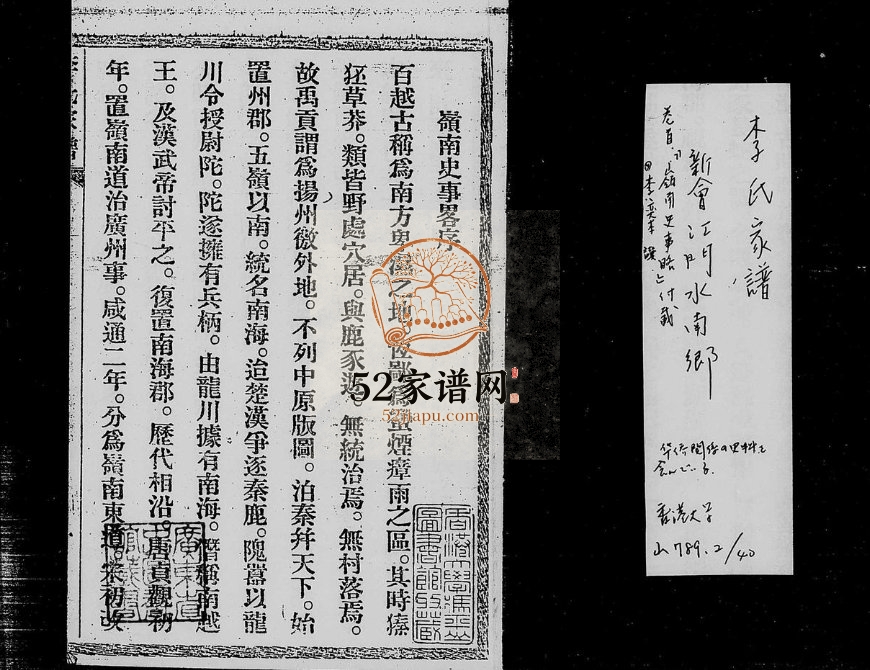 嶺南史事畧序
百越古稱爲南方卑濕之地。爲蠻煙瘴雨之區。其時獉
狉草莽。類皆野處穴居。與鹿豕遊。無統治焉。無村落焉。
故禹貢謂爲揚州徼外地。不列中原版圖。洎秦幷天下。始
置州郡。五嶺以南。統名南海。迨楚漢爭逐秦鹿。隗囂以龍
川令授尉陀。陀遂擁有兵柄。由龍川據有南海。僭稱南越
王。及漢武帝討平之。復置南海郡。歷代相沿。唐貞觀初
年。置嶺南道治廣州事。咸通二年。分爲嶺南東道。宋初改
李氏家譜
52家谱网
52jiapu.com
香港大學馮平山圖書館藏
廣東省
李氏家譜
新會江門水南鄉
卷首「嶺南史事略」付載
香港大学
山789.2/40